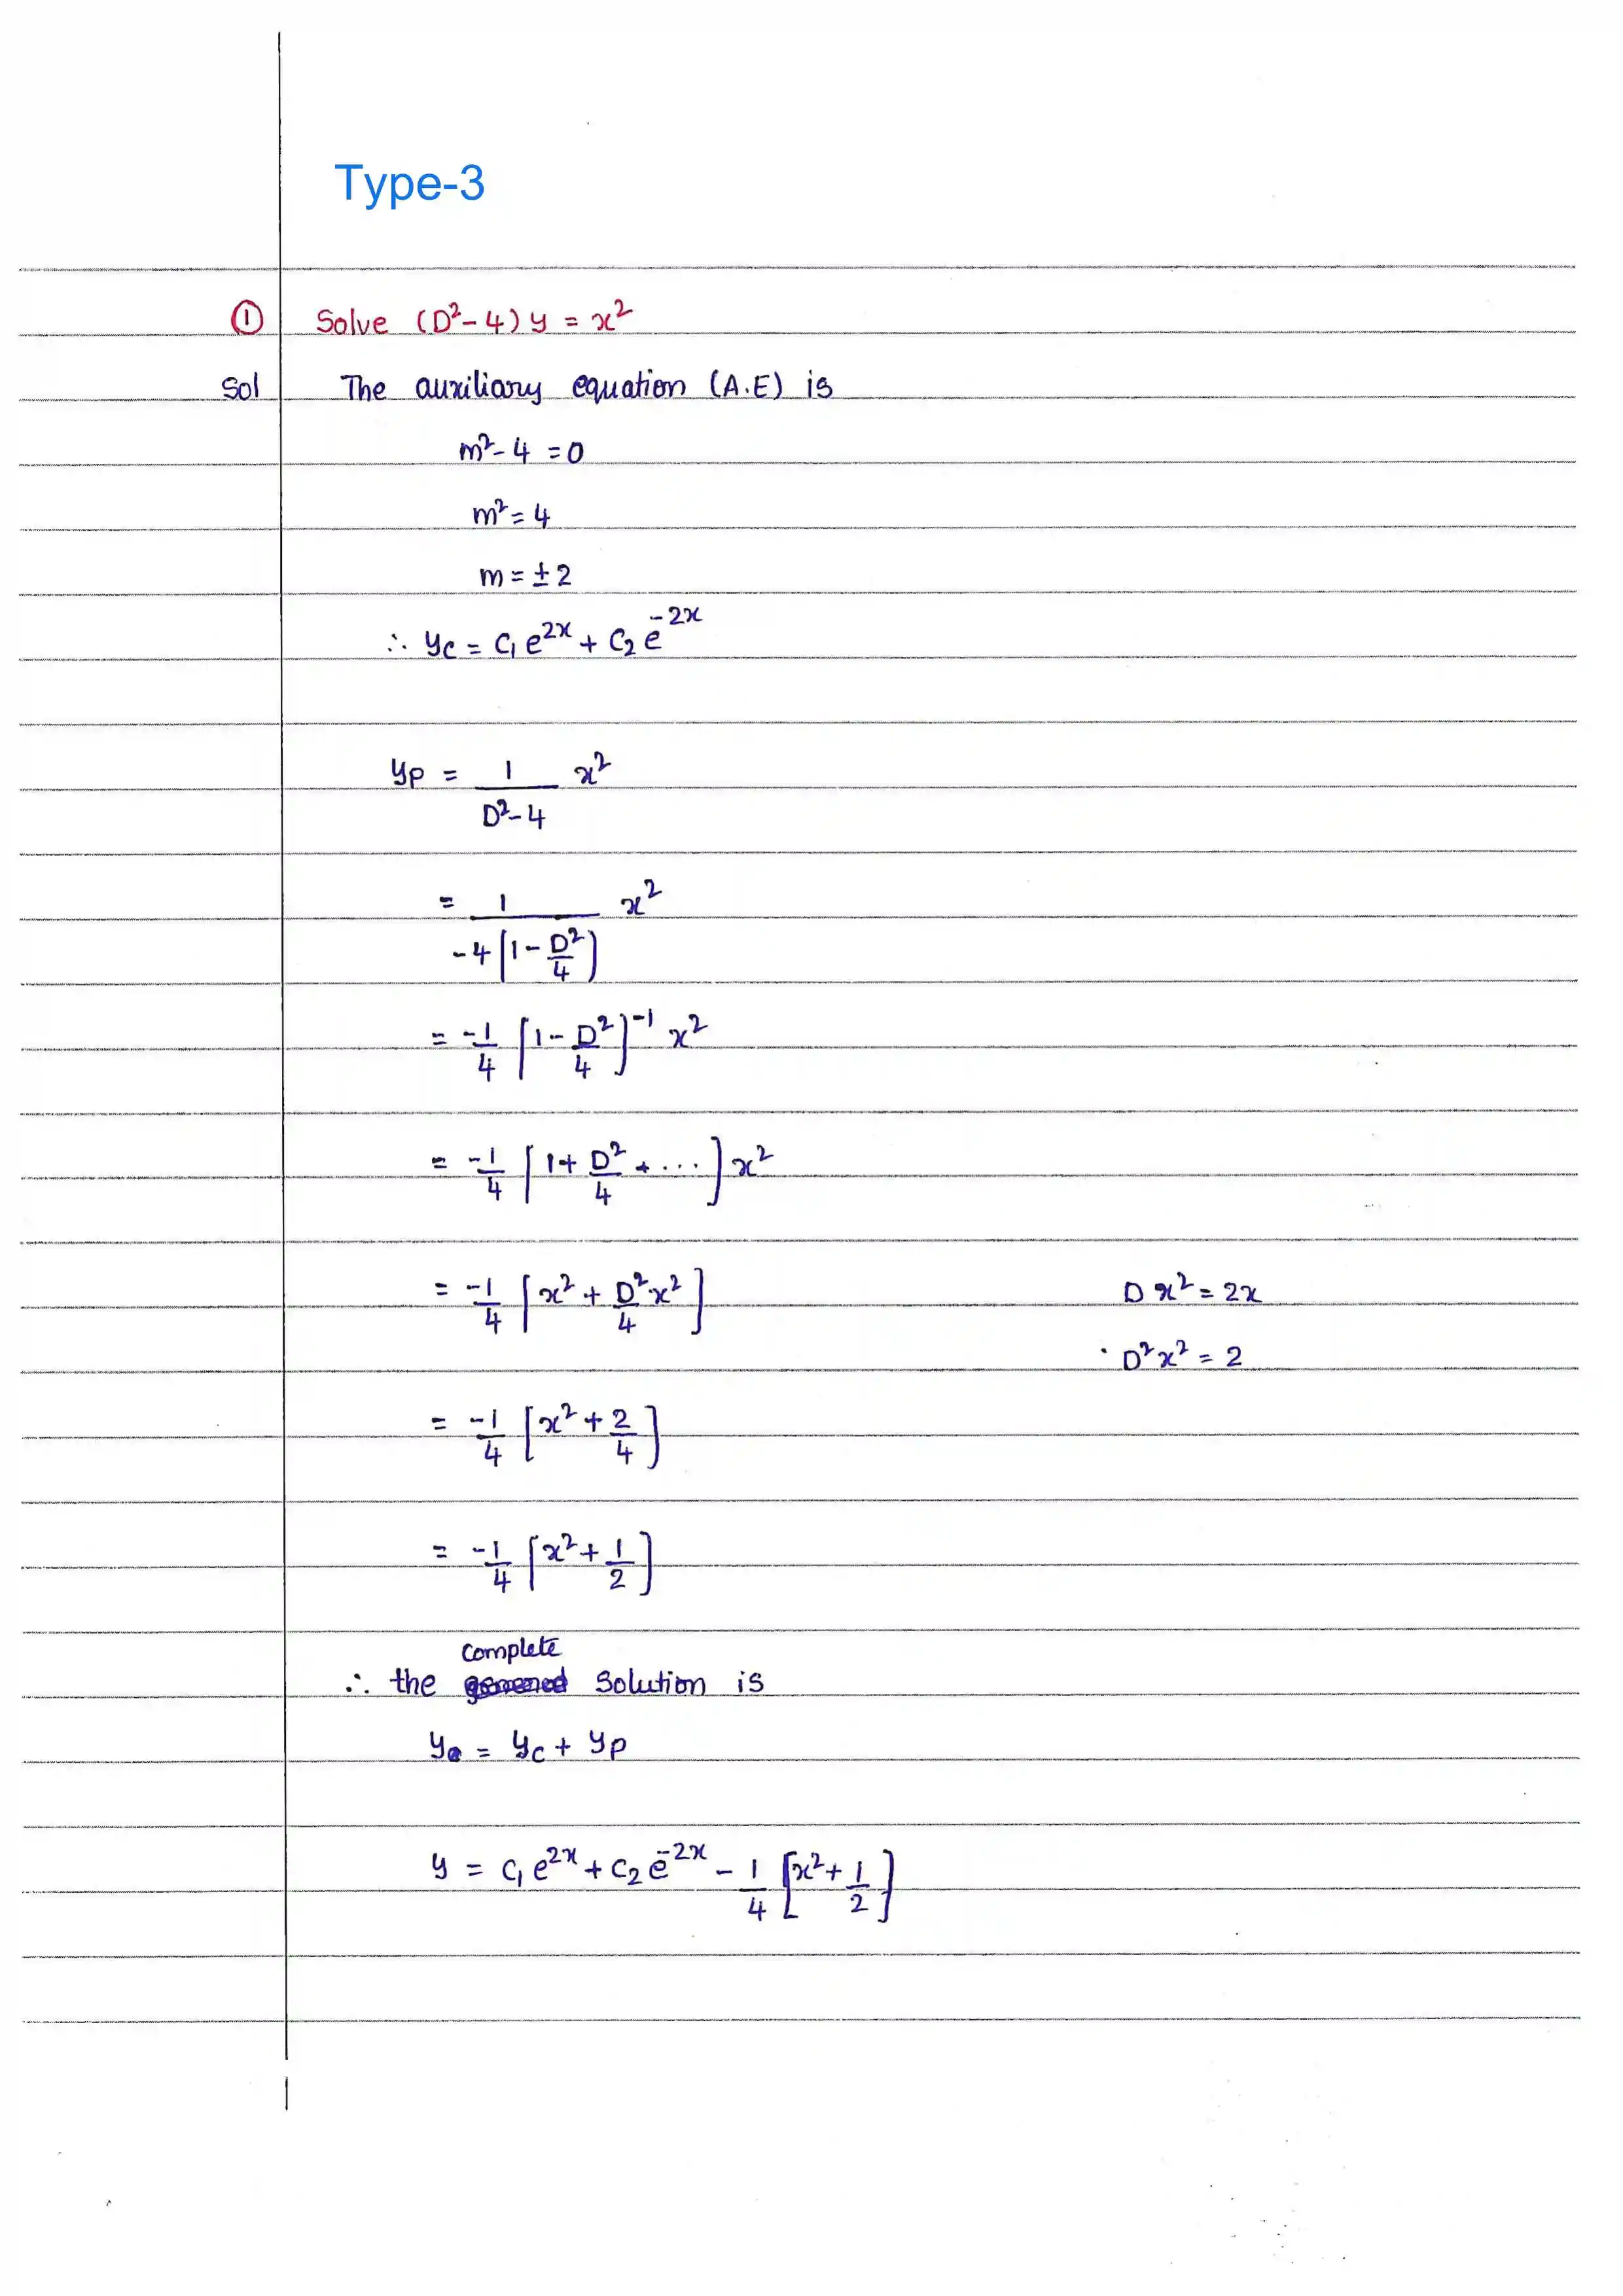 Type-3
① Solve (D² - 4) y = x²
Sol The auxiliary equation (A.E) is
m² - 4 = 0
m² = 4
m = ± 2
∴ yc = C₁ e^2x + C₂ e^-2x
yp = 1/(D² - 4) x²
= 1/(-4[1 - D²/4]) x²
= -1/4 [1 - D²/4]^-1 x²
= -1/4 [1 + D²/4 + ...] x²
= -1/4 [x² + D²·x²/4] D x² = 2x
D² x² = 2
= -1/4 [x² + 2/4]
= -1/4 [x² + 1/2]
complete
∴ the solution is
y = yc + yp
y = C₁ e^2x + C₂ e^-2x - 1/4 [x² + 1/2]